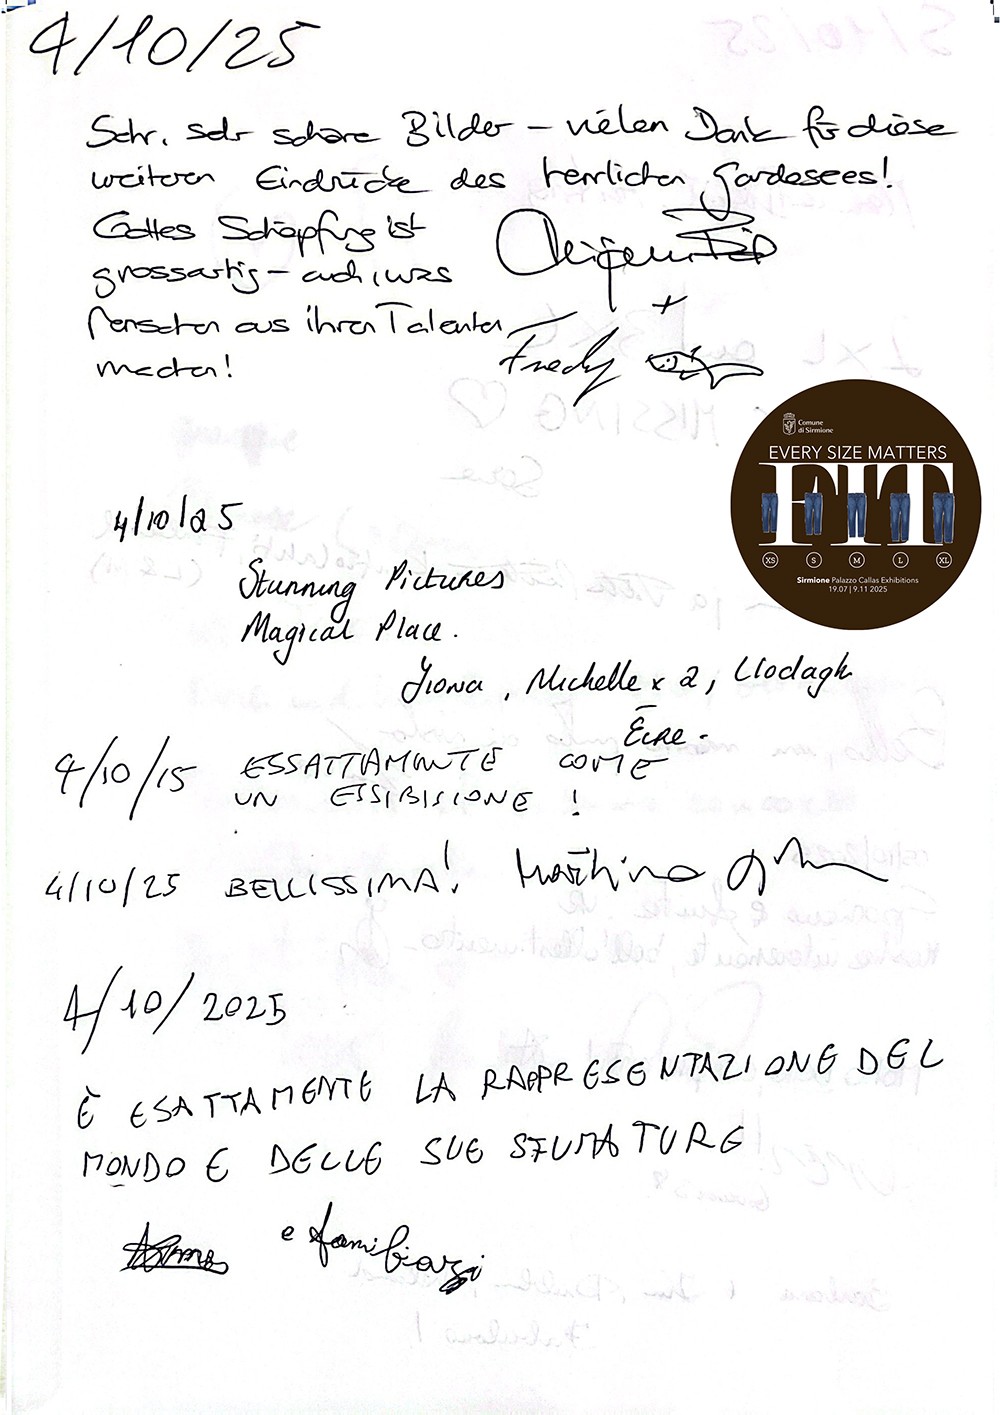 4/10/25
Sehr, sehr schöne Bilder – vielen Dank für diese
weiteren Eindrücke des herrlichen Gardasees!
Gottes Schöpfung ist
grossartig – auch, was
Menschen aus ihren Talenten
machen!
+
Fredy
Comune
di Sirmione
EVERY SIZE MATTERS
FIT
XS S M L XL
Sirmione Palazzo Callas Exhibitions
19.07 | 9.11 2025
4/10/25
Stunning Pictures
Magical Place.
Fiona, Michelle x 2, Clodagh
Éire.
4/10/15 ESSATTAMENTE COME
UN ESSIBISIONE!
4/10/25 BELLISSIMA! Martina
4/10/2025
È ESATTAMENTE LA RAPPRESENTAZIONE DEL
MONDO E DELLE SUE SFUMATURE
e